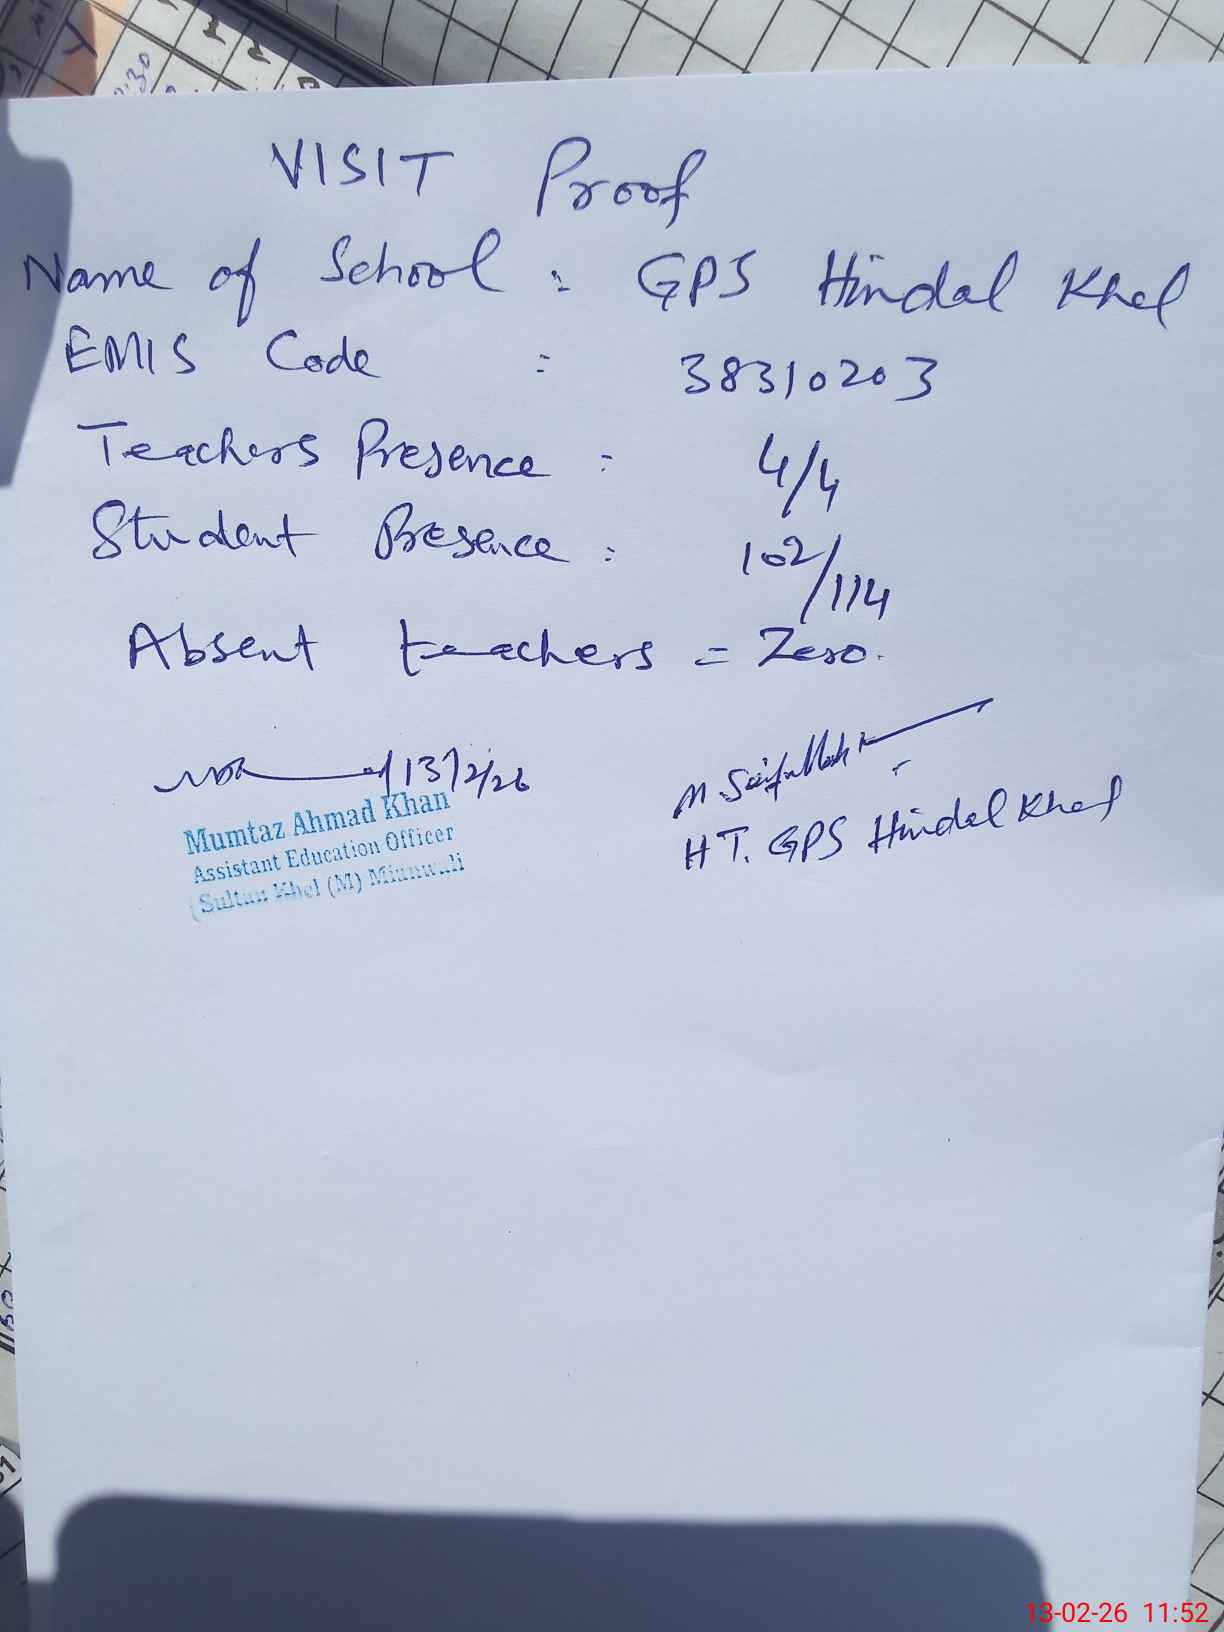 VISIT Proof
Name of School : GPS Hindal Khel
EMIS Code : 38310203
Teachers Presence : 4/4
Student Presence : 102/114
Absent teachers = Zero.
13/2/26
Mumtaz Ahmad Khan
Assistant Education Officer
(Sultan Khel (M) Mianwali
M. Saifullah K
HT. GPS Hindal Khel
13-02-26 11:52